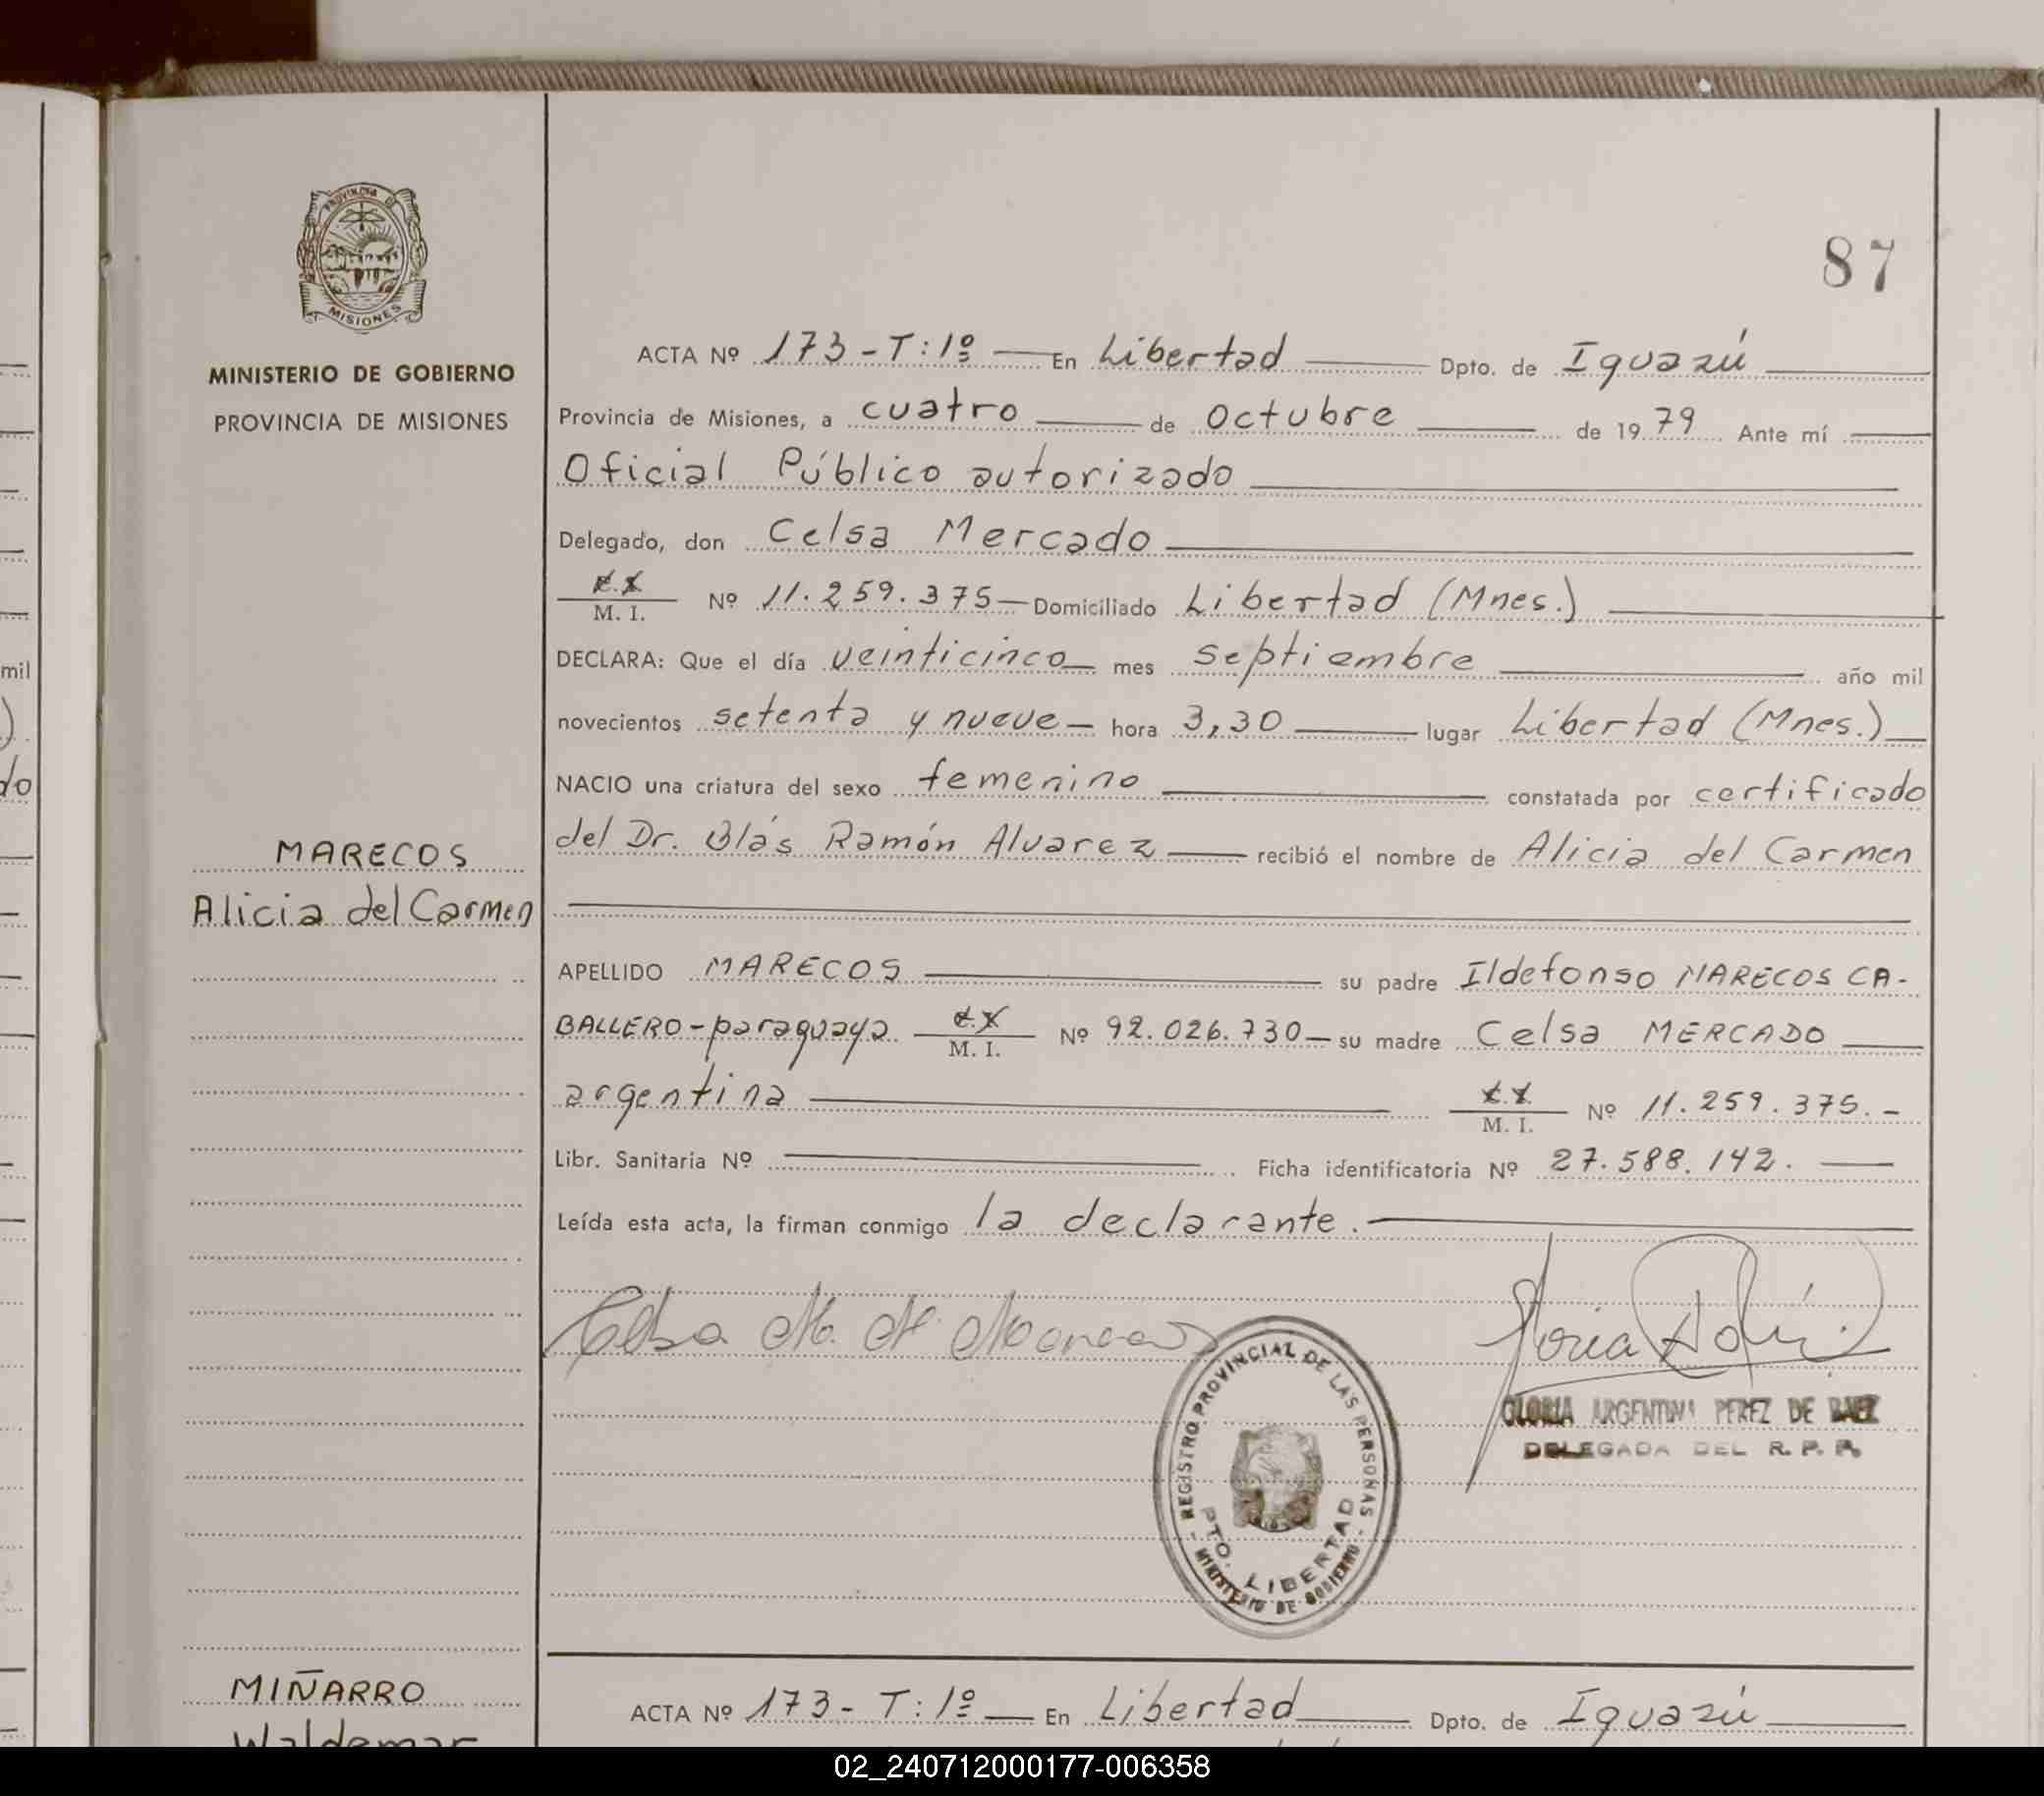 PROVINCIA D
MISIONES
MINISTERIO DE GOBIERNO
PROVINCIA DE MISIONES
87
ACTA Nº 173-T:1º En Libertad Dpto. de Iguazú
Provincia de Misiones, a cuatro de Octubre de 1979 Ante mí
Oficial Público autorizado
Delegado, don Celsa Mercado
M. I. Nº 11.259.375 Domiciliado Libertad (Mnes.)
DECLARA: Que el día veinticinco mes septiembre año mil
novecientos setenta y nueve hora 3,30 lugar Libertad (Mnes.)
NACIO una criatura del sexo femenino constatada por certificado
del Dr. Blás Ramón Alvarez recibió el nombre de Alicia del Carmen
MARECOS
Alicia del Carmen
APELLIDO MARECOS su padre Ildefonso MARECOS CA-
BALLERO-paraguaya M. I. Nº 92.026.730 su madre Celsa MERCADO
argentina M. I. Nº 11.259.375.-
Libr. Sanitaria Nº Ficha identificatoria Nº 27.588.142.
Leída esta acta, la firman conmigo la declarante.
Celsa M. de Marecos
GLORIA ARGENTINA PEREZ DE BAEZ
DELEGADA DEL R. P. P.
REGISTRO PROVINCIAL DE LAS PERSONAS
PTO. LIBERTAD
MINISTERIO DE GOBIERNO
MIÑARRO
Waldemar
ACTA Nº 173-T:1º En Libertad Dpto. de Iguazú
mil
do
02_240712000177-006358